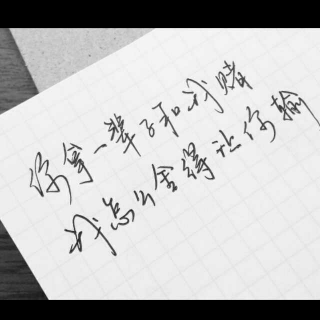 你拿一辈子和我赌
我怎么舍得让你输